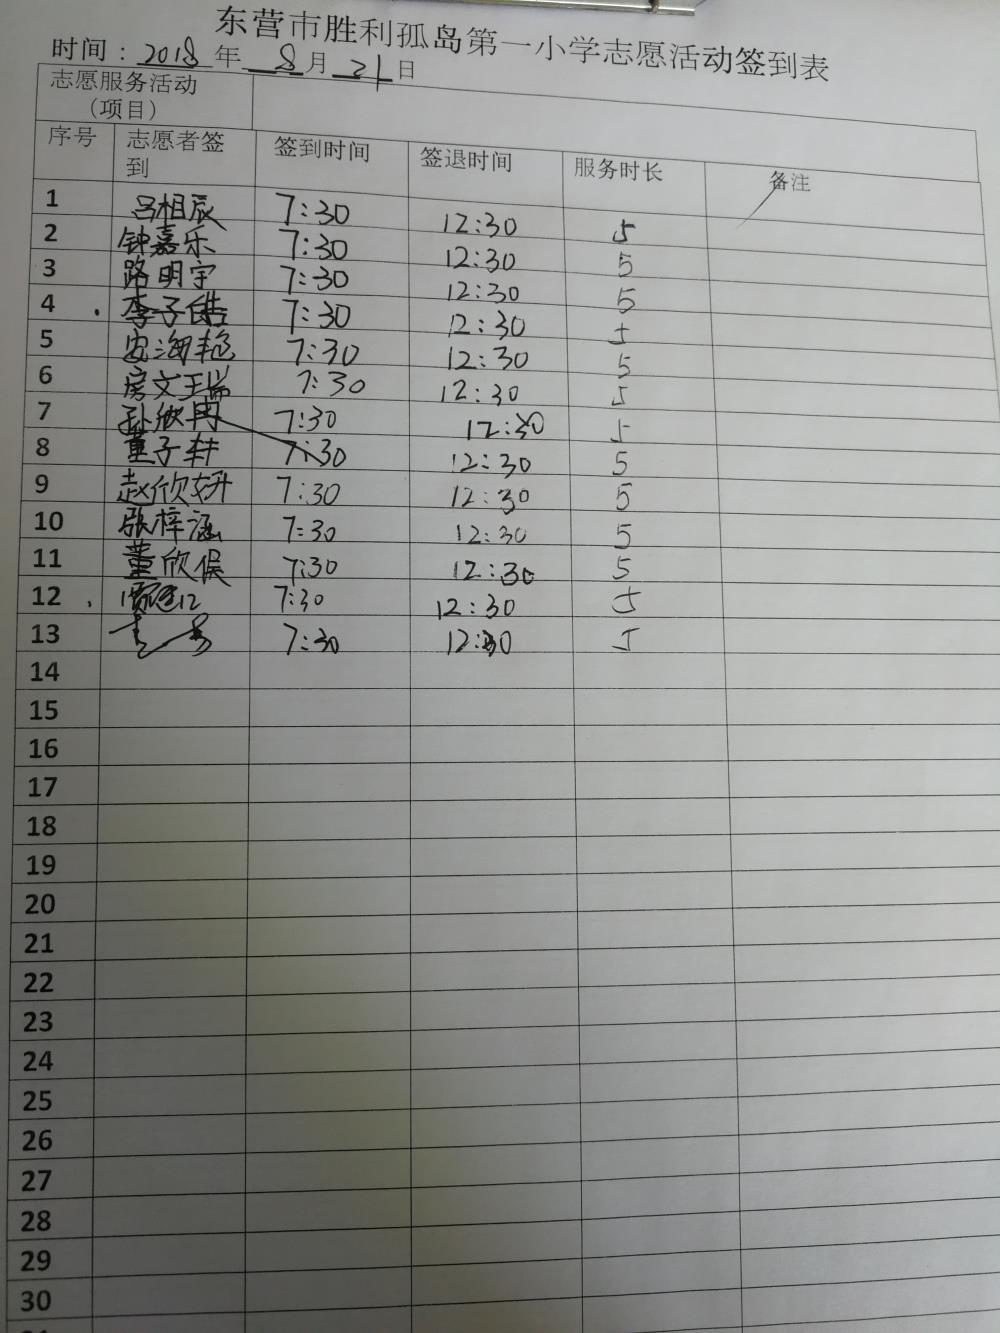 东营市胜利孤岛第一小学志愿活动签到表
时间：2018年 8月 21日
志愿服务活动
（项目）
序号 志愿者签到 签到时间 签退时间 服务时长 备注
1 吕相辰 7:30 12:30 5
2 钟嘉乐 7:30 12:30 5
3 路明宇 7:30 12:30 5
4 李子皓 7:30 12:30 5
5 安海艳 7:30 12:30 5
6 房文瑞 7:30 12:30 5
7 孙欣冉 7:30 12:30 5
8 董子轩 7:30 12:30 5
9 赵欣妍 7:30 12:30 5
10 张梓涵 7:30 12:30 5
11 董欣俣 7:30 12:30 5
12 7:30 12:30 5
13 7:30 12:30 5
14
15
16
17
18
19
20
21
22
23
24
25
26
27
28
29
30